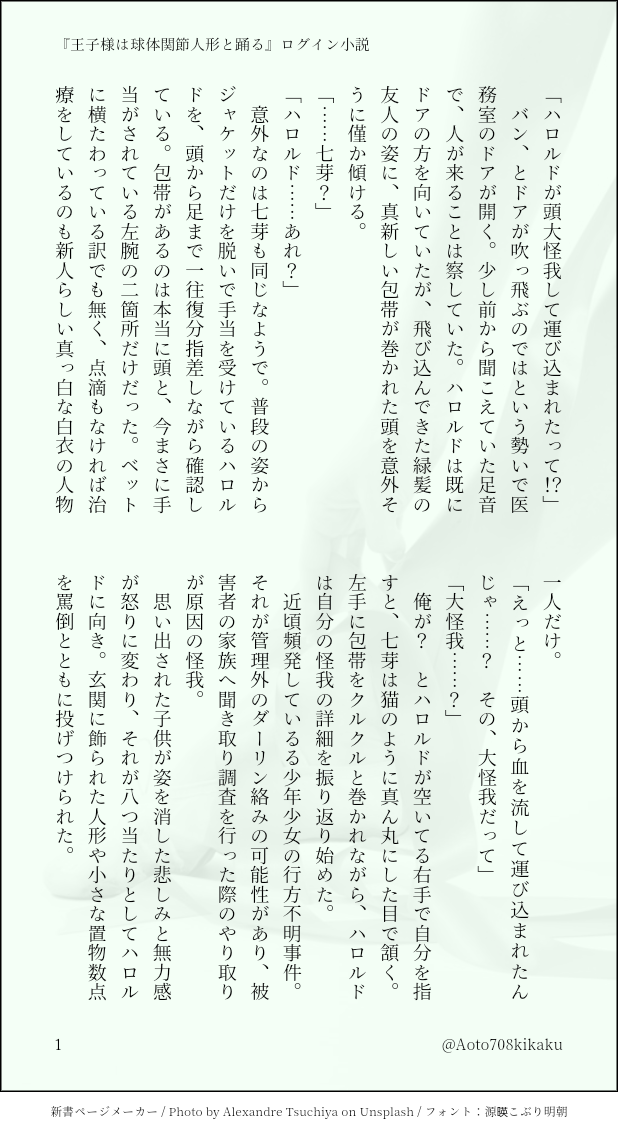 『王子様は球体関節人形と踊る』ログイン小説
「ハロルドが頭大怪我して運び込まれたって!?」
　バン、とドアが吹っ飛ぶのではという勢いで医
務室のドアが開く。少し前から聞こえていた足音
で、人が来ることは察していた。ハロルドは既に
ドアの方を向いていたが、飛び込んできた緑髪の
友人の姿に、真新しい包帯が巻かれた頭を意外そ
うに僅か傾ける。
「……七芽？」
「ハロルド……あれ？」
　意外なのは七芽も同じなようで。普段の姿から
ジャケットだけを脱いで手当を受けているハロル
ドを、頭から足まで一往復分指差しながら確認し
ている。包帯があるのは本当に頭と、今まさに手
当がされている左腕の二箇所だけだった。ベット
に横たわっている訳でも無く、点滴もなければ治
療をしているのも新人らしい真っ白な白衣の人物
一人だけ。
「えっと……頭から血を流して運び込まれたん
じゃ……？　その、大怪我だって」
「大怪我……？」
　俺が？　とハロルドが空いてる右手で自分を指
すと、七芽は猫のように真ん丸にした目で頷く。
左手に包帯をクルクルと巻かれながら、ハロルド
は自分の怪我の詳細を振り返り始めた。
　近頃頻発しているる少年少女の行方不明事件。
それが管理外のダーリン絡みの可能性があり、被
害者の家族へ聞き取り調査を行った際のやり取り
が原因の怪我。
　思い出された子供が姿を消した悲しみと無力感
が怒りに変わり、それが八つ当たりとしてハロル
ドに向き。玄関に飾られた人形や小さな置物数点
を罵倒とともに投げつけられた。
1
@Aoto708kikaku
新書ページメーカー / Photo by Alexandre Tsuchiya on Unsplash / フォント：源暎こぶり明朝